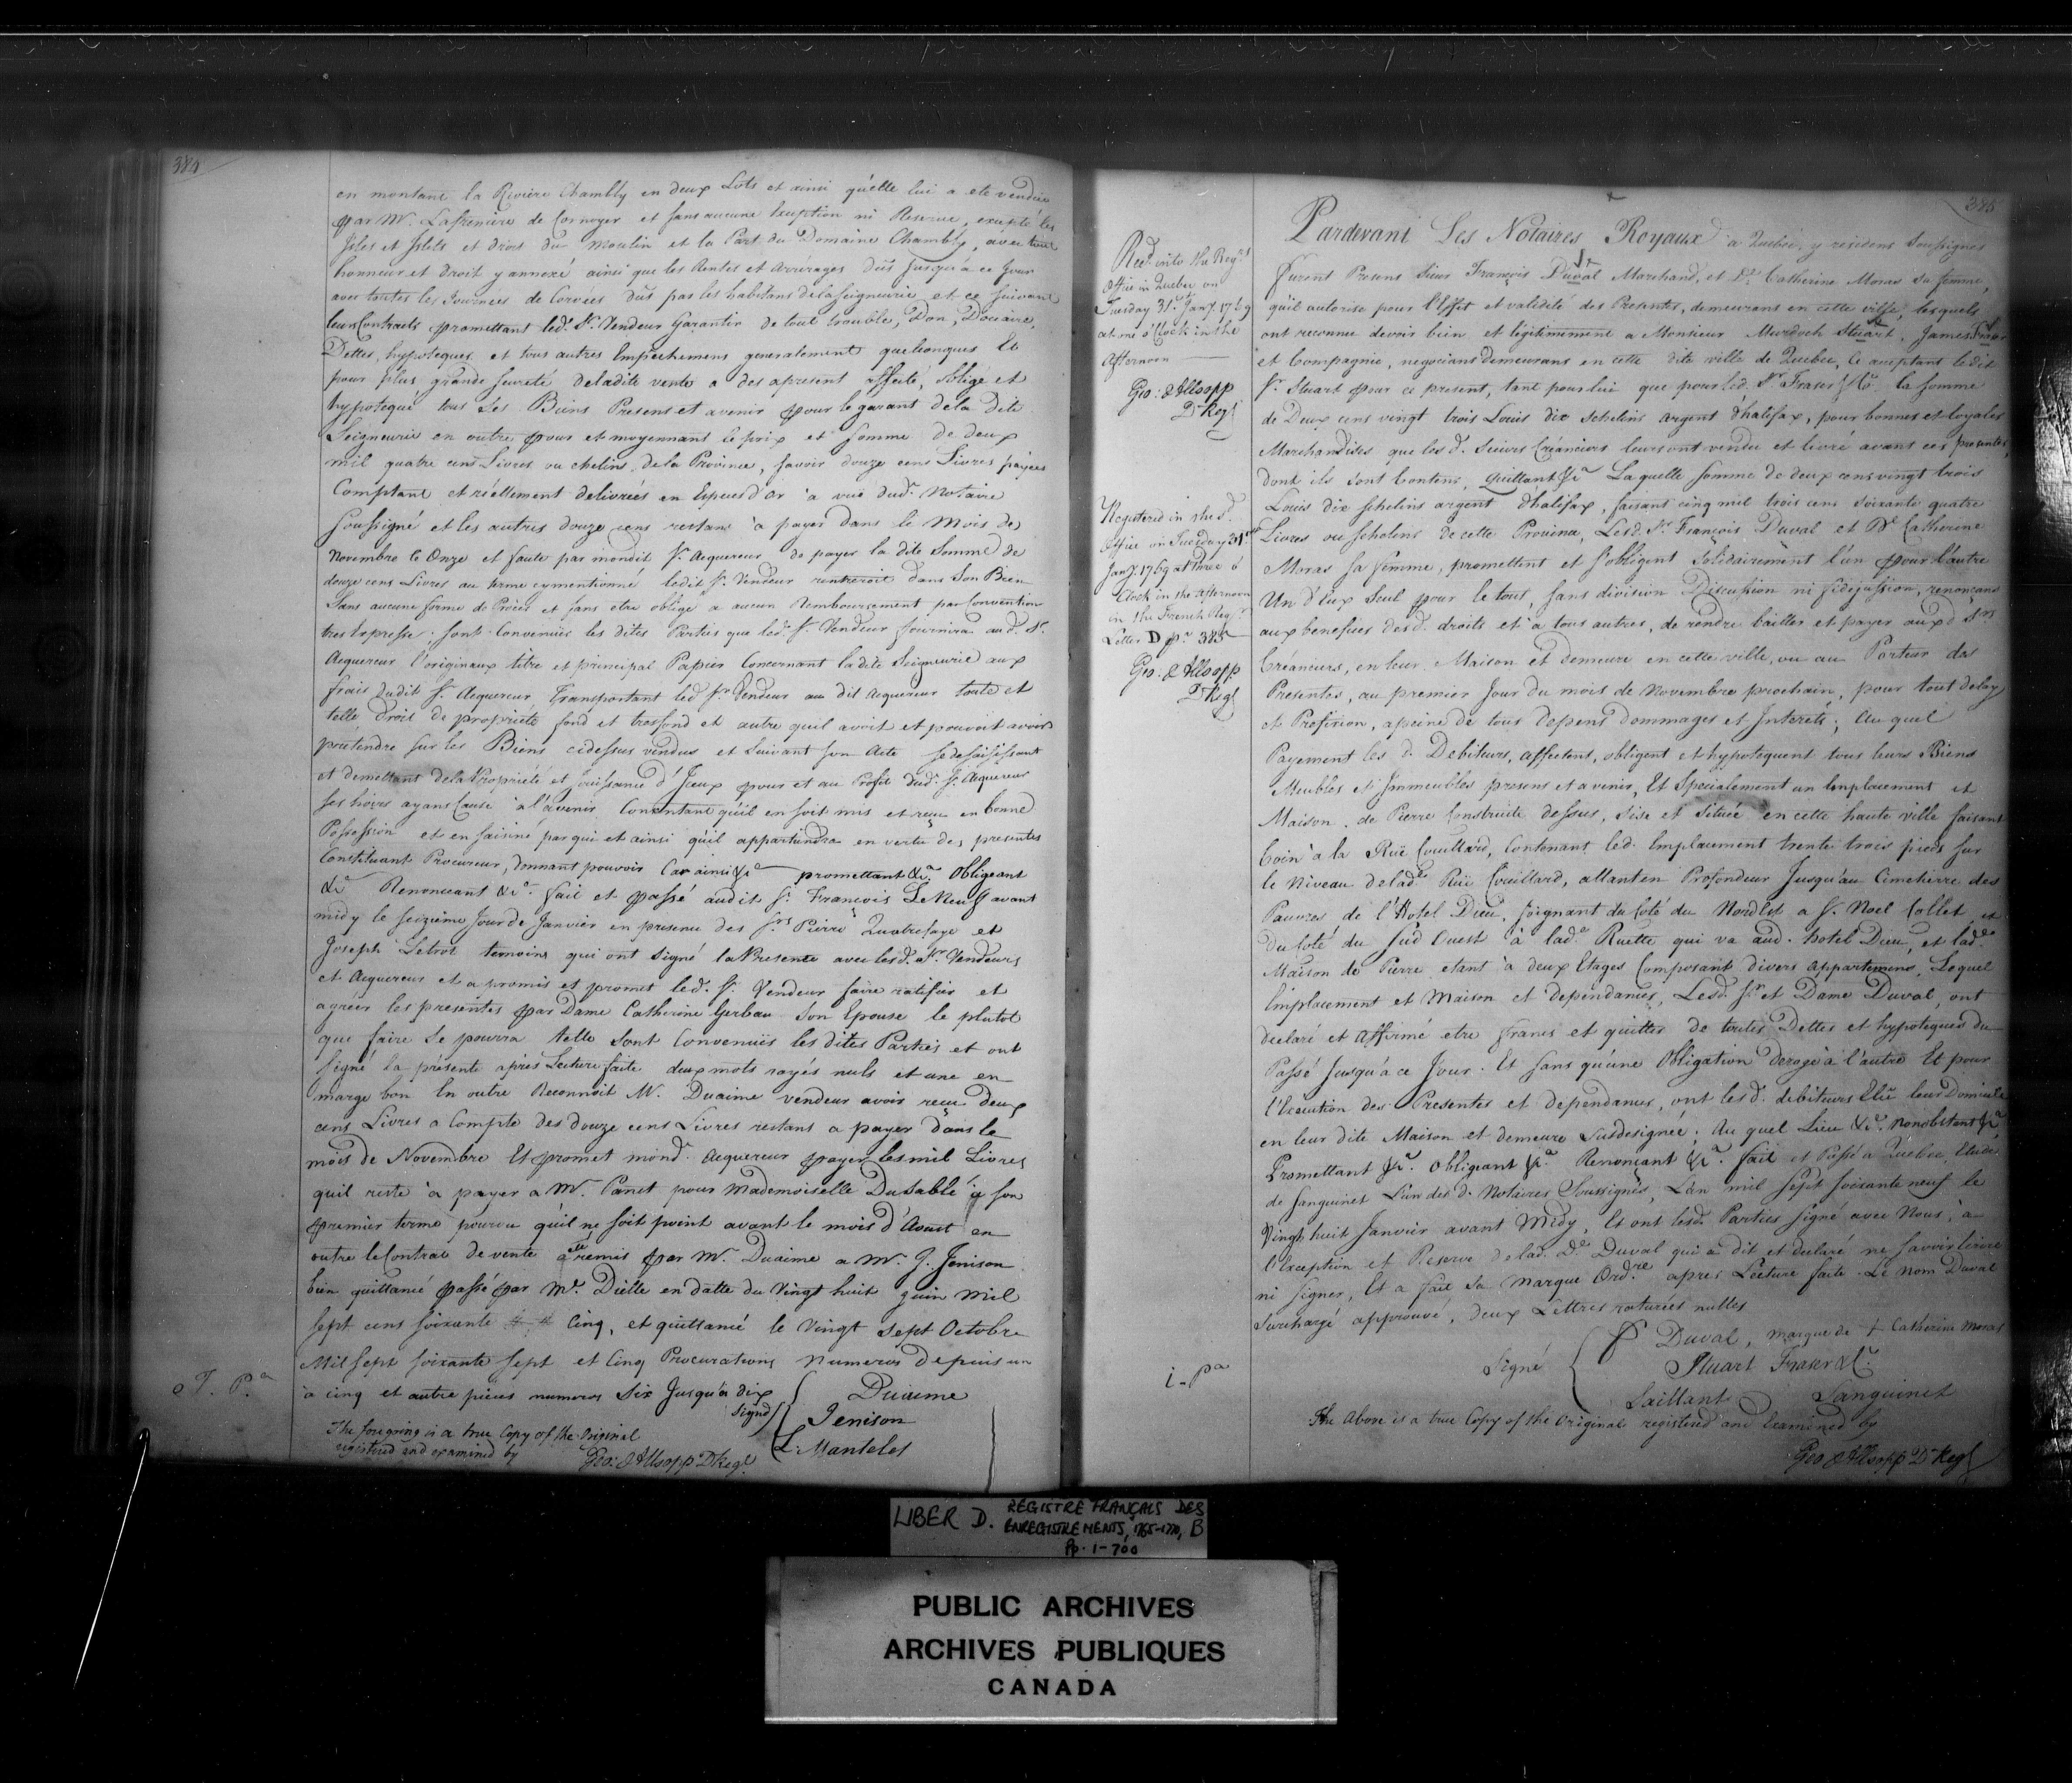 384
en montant la Rivière Chambly en deux Lots et ainsi qu'elle lui a eté vendüe
par Mr. Lafrenière de Cornoyer et sans aucune Exception ni Reserve, excepté les
Isles et Islets et droit du Moulin et la Part du Domaine Chambly, avec tout
honneur et droit y annexé ainsi que les Rentes et Arrérages dûs Jusqu'à ce Jour
avec toutes les Journées de Corvées dûs par les habitans de la Seigneurie et ce suivant
leurs Contracts promettant led. Sr. Vendeur Garantir de tout trouble, Don, Douaire,
Dettes, hypoteques et tous autres Empechemens generalement quelconques Et
pour plus grande sureté de ladite vente a des apresent affecté, obligé et
hypotequé tous ses Biens Presens et avenir pour le garant de la dite
Seigneurie en outre pour et moyennant le prix et somme de deux
mil quatre cens Livres ou chelins de la Province, savoir douze cens Livres payées
Comptant et réellement delivrées en Especes d'or à vuë dud. Notaire
soussigné et les autres douze cens restans à payer dans le Mois de
Novembre le Onze et faute par mondit Sr. Acquereur de payer la dite Somme de
douze cens Livres au terme cymentionné ledit Sr. Vendeur rentreroit dans Son Bien
Sans aucune forme de Procès et sans etre obligé a aucun Remboursement par Convention
tres Expresse. sont Convenuës les dites Parties que led. Sr. Vendeur fournira aud. Sr.
Acquereur l'originaux titre et principal Papier Concernant ladite Seigneurie aux
frais dudit Sr. Acquereur Transportant led Sr. Vendeur au dit Acquereur toute et
telle droit de propriété fond et tresfond et autre quil avoit et pouvoit avoir
prétendre sur les Biens cidessus vendus et Suivant son Acte se desaisissant
et demettant de la Propriété et Jouissance d'Iceux pour et au Profit dud. Sr. Acquereur
ses hoirs ayans Cause à l'avenir Consentant qu'il en soit mis et reçu en bonne
Possession et en saisiné par qui et ainsi qu'il appartiendra en vertu des presentes
Constituant Procureur, donnant pouvoir Car ainsi &ca promettant &ca. Obligeant
&ca Renoncant &ca. fait et passé audit St. François Le Neuf avant
midy le seizième Jour de Janvier en presence des Srs. Pierre Quatresage et
Joseph Letrot temoins qui ont signé la Presente avec lesd. Srs. Vendeurs
et Acquereur et a promis et promet led. Sr. Vendeur faire ratifier et
agréer les presentes par Dame Catherine Gerbau Son Epouse le plutot
que faire Se pourra telle sont Convenuës les dites Parties et ont
signé la présente après Lecture faite deux mots rayés nuls et une en
marge bon En outre Reconnoit Mr. Duaime vendeur avoir reçu deux
cens Livres a Compte des douze cens Livres restans a payer dans le
mois de Novembre Et promet mond. Acquereur payer les mil Livres
quil reste à payer a Mr. Panet pour Mademoiselle Dusablé à son
premier terme pourvu qu'il ne soit point avant le mois d'Aoust en
outre le Contrat de vente a eté remis par Mr. Duaime a Mr. J. Jenison
bien quittancé passé par Mr. Dielle en datte du Vingt huit Juin Mil
sept cens soixante Cinq, et quittancé le Vingt Sept Octobre
Mil Sept soixante sept et Cinq Procurations Numeros Depuis un
à cinq et autre pièces numeros Six Jusqu'à dix
Signé
Duaime
Jenison
L. Mantelet
T. Pa
The foregoing is a true Copy of the Original
registered and examined by Geo: Allsopp D Regr.
385
Recd. into the Regrs.
Office in Quebec on
Tuesday 31st Jany. 1769
at one o'Clock in the
Afternoon
Geo: Allsopp
D Regr
Registered in the sd.
Office on Tuesday 31st
Jany. 1769 at three o'
Clock in the Afternoon
in the French Regr.
Letter D pa. 385
Geo: Allsopp
D Regr
Pardevant Les Notaires Royaux à Quebec y residens Soussignés
furent Presens Sieur François Duval Marchand, et De. Catherine Moras Sa femme,
qu'il autorise pour l'Effet et validité des Presentes, demeurans en cette ville, lesquels
ont reconnu devoir bien et légitimement a Monsieur Murdoch Stuart, James Fraser
et Compagnie, negocians demeurans en cette dite ville de Quebec, ce acceptant ledit
Sr. Stuart pour ce present, tant pour lui que pour led. Sr. Fraser & Co. la somme
de Deux cens vingt trois Louis dix Schelins argent d'halifax, pour bonnes et loyales
Marchandises que les d. Sieurs Créanciers leurs ont vendu et livré avant ces presentes,
dont ils sont Contens, Quittant &ca Laquelle somme de deux cens vingt trois
Louis dix schelins argent d'halifax, faisant cinq mil trois cens Soixante quatre
Livres ou Schelins de cette Province, Lesd. Sr. François Duval et De. Catherine
Moras sa femme, promettent et s'obligent Solidairement l'un pour l'autre
Un d'eux Seul pour le tout, sans division Discussion ni fidejussion, renonçans
aux benefices desd. droits et à tous autres, de rendre bailler et payer auxd. Srs
Créanciers, en leur Maison et demeure en cette ville, ou au Porteur des
Presentes, au premier Jour du mois de Novembre prochain, pour tout delay
et Prefixion, apeine de tous Depens dommages et Interets; Au quel
Payement les d. Debiteurs, affectent, obligent et hypotequent tous leurs Biens
Meubles et Immeubles presens et avenir, Et Specialement un Emplacement et
Maison de Pierre Construite dessus, Sise et Située en cette haute ville faisant
Coin à la Rue Couillard, Contenant led. Emplacement trente trois pieds sur
le Niveau de lade Rüe Couillard, allant en Profondeur Jusqu'au Cimetierre des
Pauvres de l'Hotel Dieu, Joignant du Coté du Nord Est a Sr. Noel Collet et
Du Coté du Sud Ouest à lade. Ruette qui va aud. hotel Dieu, et lade.
Maison de Pierre etant à deux Etages Composant divers Appartemens, Lequel
Emplacement et Maison et dependances, Lesd. Sr. et Dame Duval, ont
Declaré et Affirmé etre francs et quittes de toutes Dettes et hypoteques du
Passé Jusqu'à ce Jour. Et sans qu'une Obligation deroge à l'autre Et pour
l'Execution des Presentes et dependances, ont les d. debiteurs Elû leur Domicile
en leur dite Maison et demeure Susdesignée; Au quel Lieu &ca. nonobstant &ca
Promettant &ca. Obligeant &ca. Renonçant &ca. fait et Passé a Quebec, Etude
de Sanguinet L'un des d. Notaires Soussignés, L'an mil sept soixante neuf le
Vingt huit Janvier avant Midy, Et ont lesd. Parties Signé avec Nous, à
l'Exception et Reserve de lad. De. Duval qui a dit et declaré ne savoir Ecrire
ni Signer, Et a fait sa marque Ordre après Lecture faite Le nom Duval
Surchargé approuvé, deux Lettres raturées nulles
Signé
f Duval, marque de + Catherine Moras
Stuart Fraser & Co.
Saillant Sanguinet
1. Pa
The Above is a true Copy of the Original registered and Examined by
Geo Allsopp D Regr
LIBER D. REGISTRE FRANÇAIS DES
ENREGISTREMENTS, 1765-1770, B
Pp. 1-700
PUBLIC ARCHIVES
ARCHIVES PUBLIQUES
CANADA